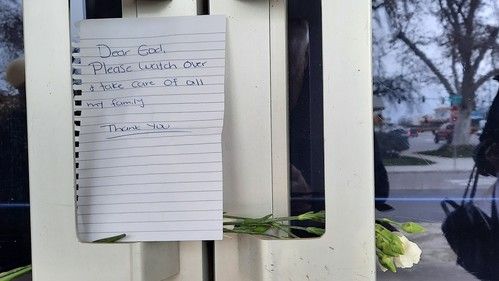 Dear God,
Please Watch Over
& take care of all
my family
Thank You